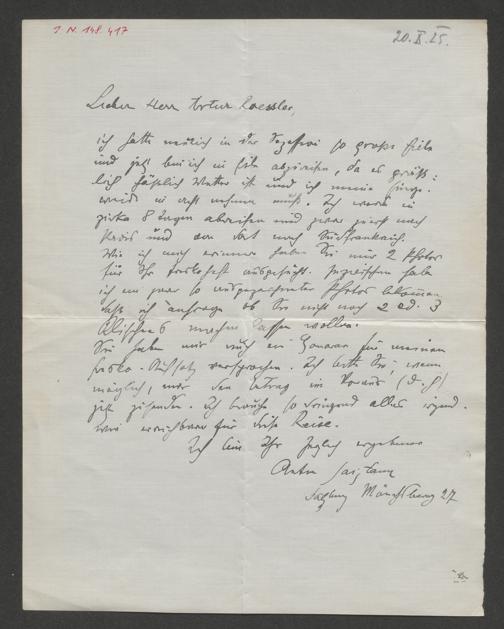 I. N. 148.417
20. X. 25.
Lieber Herr Artur Roessler,
ich hatte neulich in der Sezession so große Eile
und jetzt bin ich in Eile abzureisen, da es
häßlich Wetter ist und ich meine
in acht nehmen muß. Ich werde in
zirka 8 Tagen abreisen und zwar zuerst nach
Paris und von dort nach Südfrankreich.
Wie ich mich erinnere haben Sie nur 2 Photos
für Ihr ausgesucht. Inzwischen habe
ich ein paar so ausgezeichnete Photos bekommen
daß ich anfrage ob Sie nicht noch 2 od. 3
Klischees machen lassen wollen.
Sie haben mir auch ein Honorar für meinen
Fresko-Aufsatz versprochen. Ich bitte Sie, wenn
möglich, mir den Betrag im Voraus (d. h.)
jetzt zusenden. Ich brauche so dringend alles irgend-
wie erreichbare für diese Reise.
Ich bin Ihr ergebener
Anton Faistauer
Salzburg Mönchsberg 27